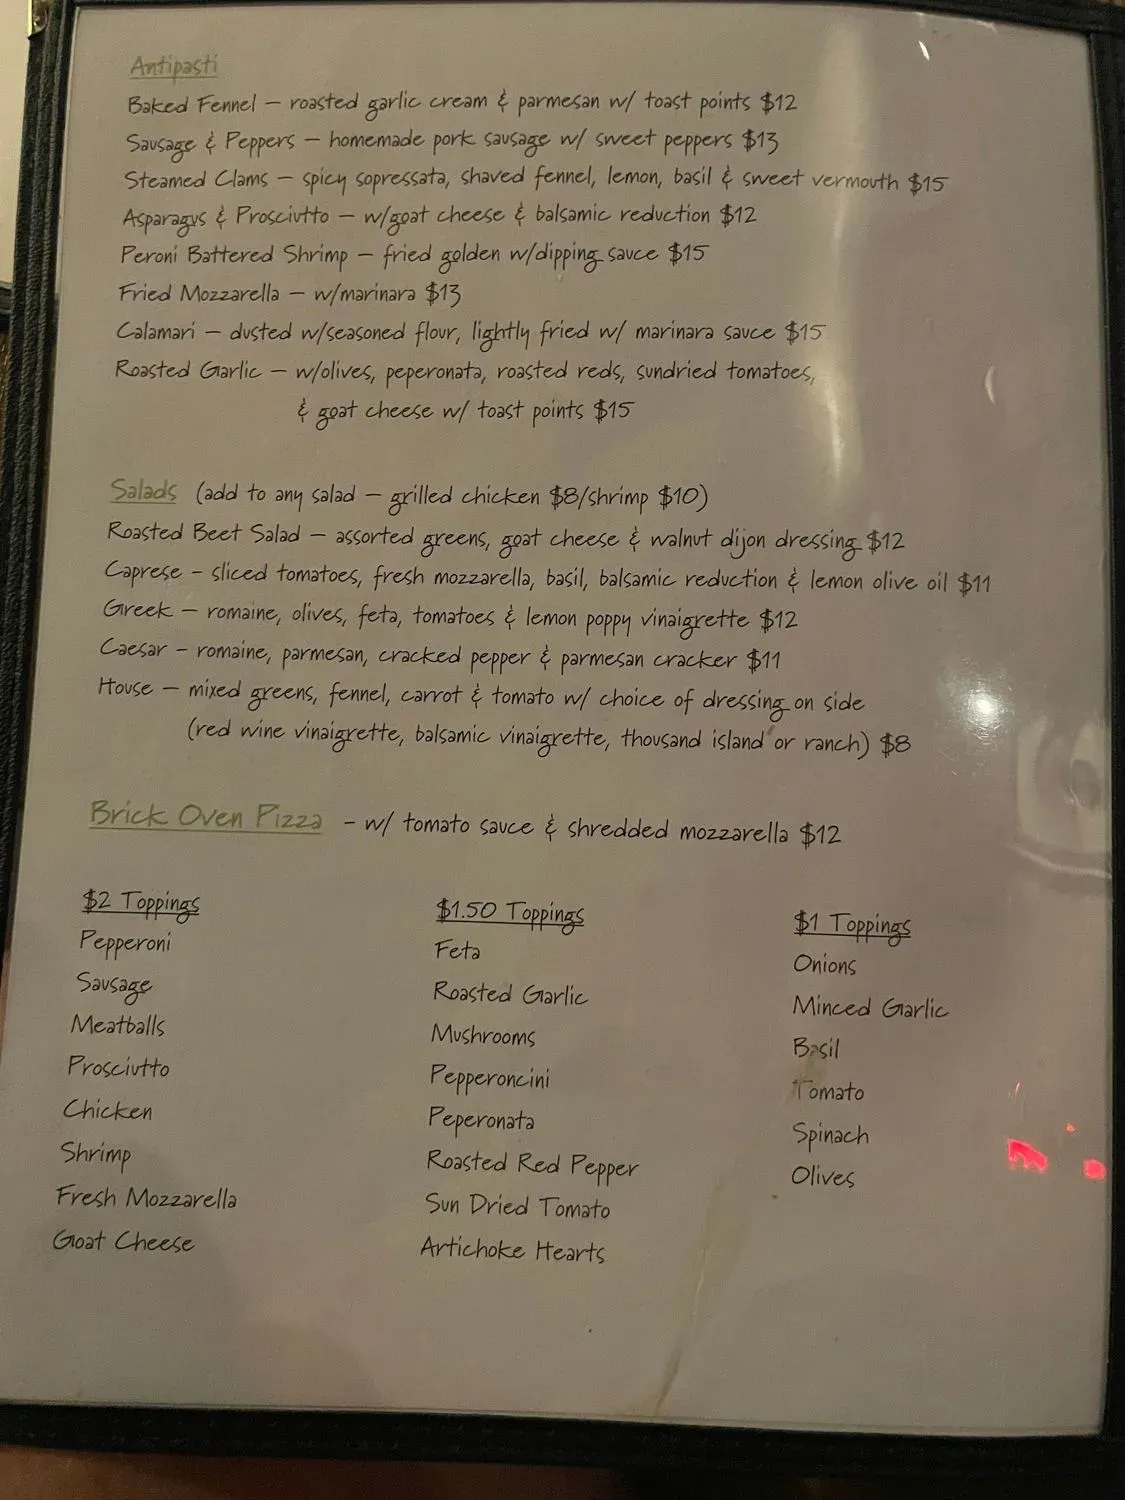 Antipasti
Baked Fennel – roasted garlic cream & parmesan w/ toast points $12
Sausage & Peppers – homemade pork sausage w/ sweet peppers $13
Steamed Clams – spicy sopressata, shaved fennel, lemon, basil & sweet vermouth $15
Asparagus & Prosciutto – w/goat cheese & balsamic reduction $12
Peroni Battered Shrimp – fried golden w/dipping sauce $15
Fried Mozzarella – w/marinara $13
Calamari – dusted w/seasoned flour, lightly fried w/ marinara sauce $15
Roasted Garlic – w/olives, peperonata, roasted reds, sundried tomatoes,
& goat cheese w/ toast points $15
Salads (add to any salad – grilled chicken $8/shrimp $10)
Roasted Beet Salad – assorted greens, goat cheese & walnut dijon dressing $12
Caprese – sliced tomatoes, fresh mozzarella, basil, balsamic reduction & lemon olive oil $11
Greek – romaine, olives, feta, tomatoes & lemon poppy vinaigrette $12
Caesar – romaine, parmesan, cracked pepper & parmesan cracker $11
House – mixed greens, fennel, carrot & tomato w/ choice of dressing on side
(red wine vinaigrette, balsamic vinaigrette, thousand island or ranch) $8
Brick Oven Pizza – w/ tomato sauce & shredded mozzarella $12
$2 Toppings
Pepperoni
Sausage
Meatballs
Prosciutto
Chicken
Shrimp
Fresh Mozzarella
Goat Cheese
$1.50 Toppings
Feta
Roasted Garlic
Mushrooms
Pepperoncini
Peperonata
Roasted Red Pepper
Sun Dried Tomato
Artichoke Hearts
$1 Toppings
Onions
Minced Garlic
Basil
Tomato
Spinach
Olives